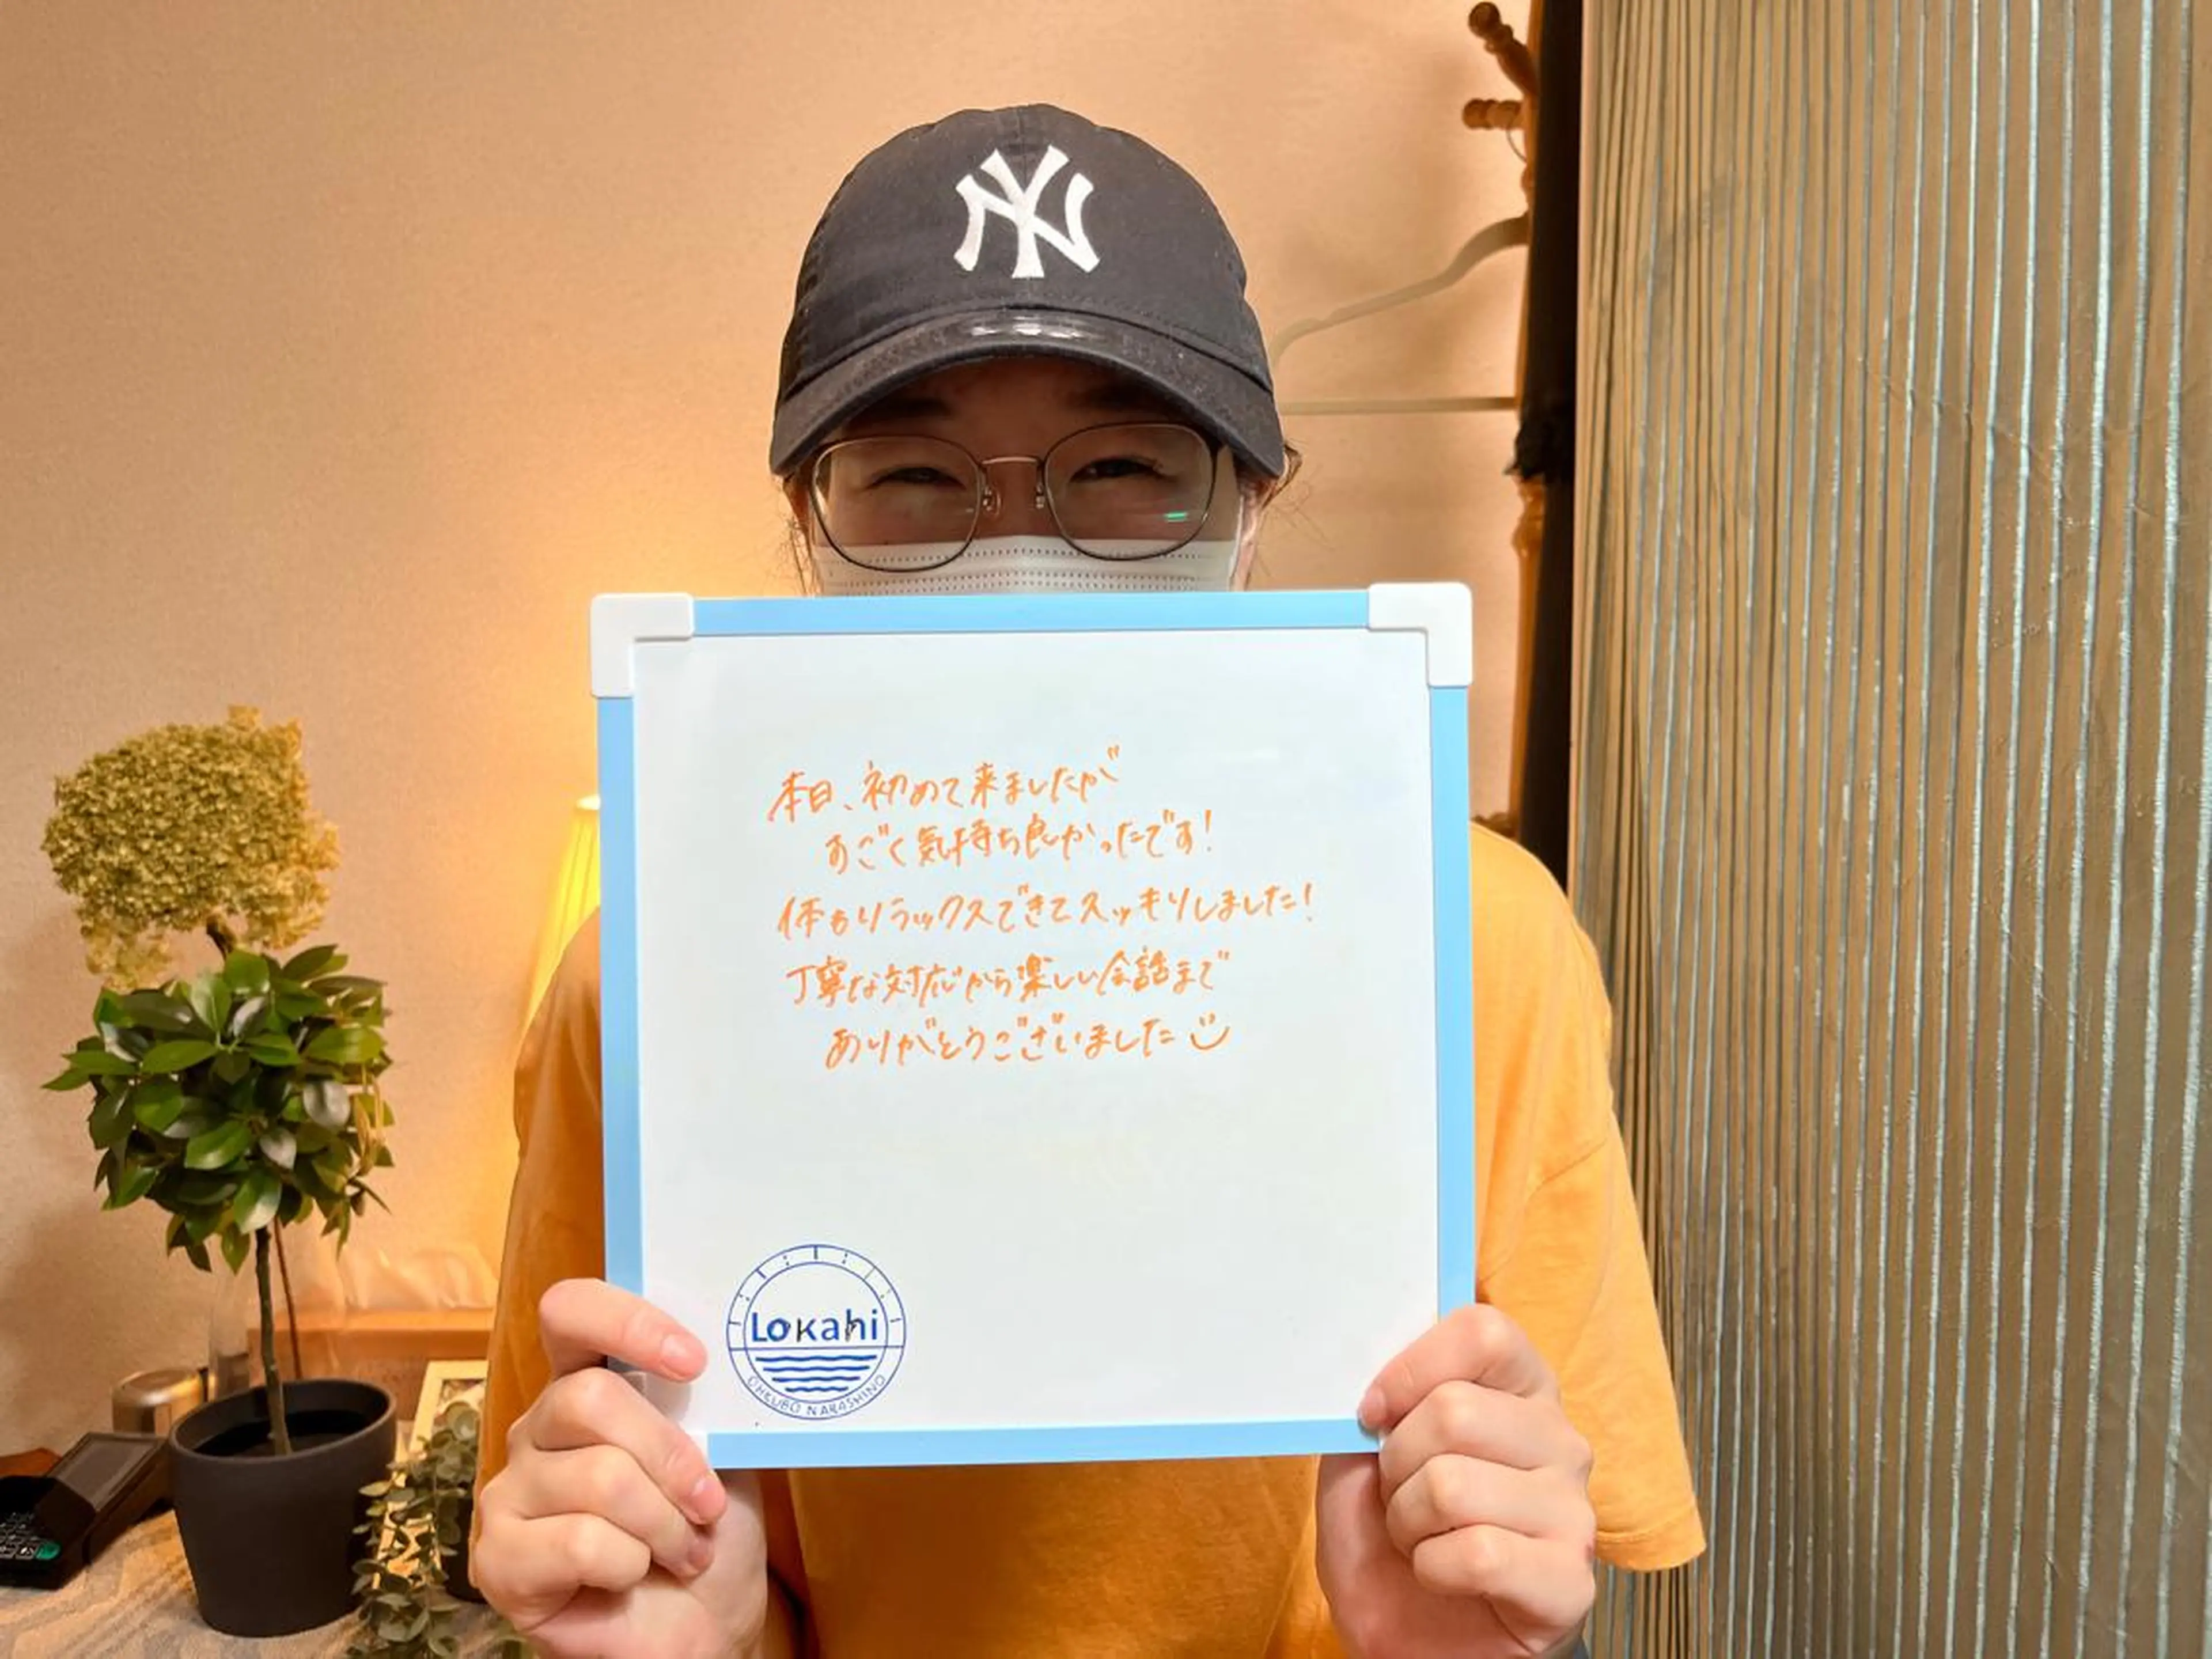 NY
本日、初めて来ましたが
すごく気持ち良かったです！
体もリラックスできてスッキリしました！
丁寧な対応から楽しい会話まで
ありがとうございました
Lokahi
OHKUBO NARASHINO